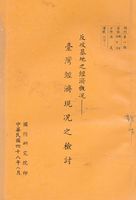 反攻基地之經濟概況——
臺灣經濟現況之檢討
國防研究院印
中華民國四十八年八月